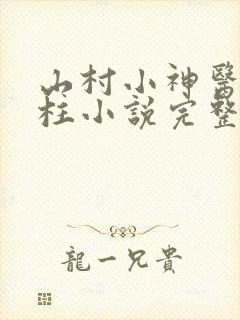 山村小神醫
柱小說完整
龍一兄貴